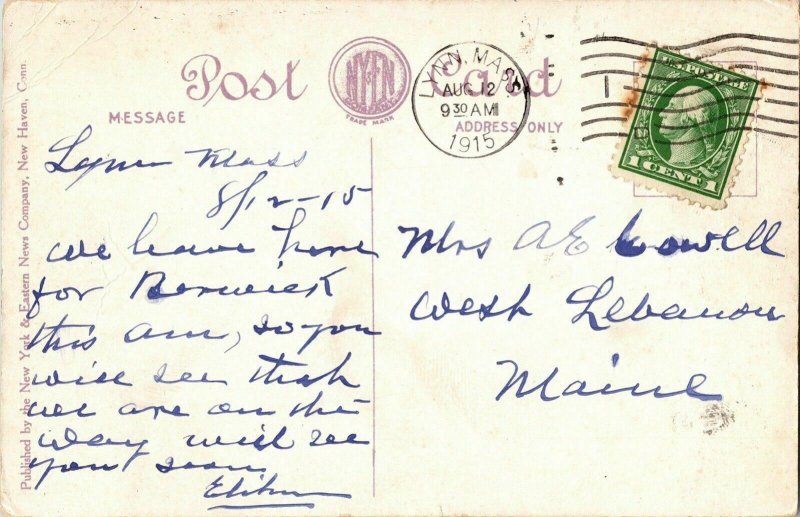 Post Card
NY&EN
COMPANY
TRADE MARK
MESSAGE
ADDRESS ONLY
LYNN, MASS
AUG 12
9 30 AM
1915
UNITED STATES
1 CENT 1
Published by the New York & Eastern News Company, New Haven, Conn.
Lynn Mass
8/12-15
We leave here
for Berwick
this am, so you
will see that
we are on the
way will see
you soon
Mrs A E Cowell
West Lebanon
Maine